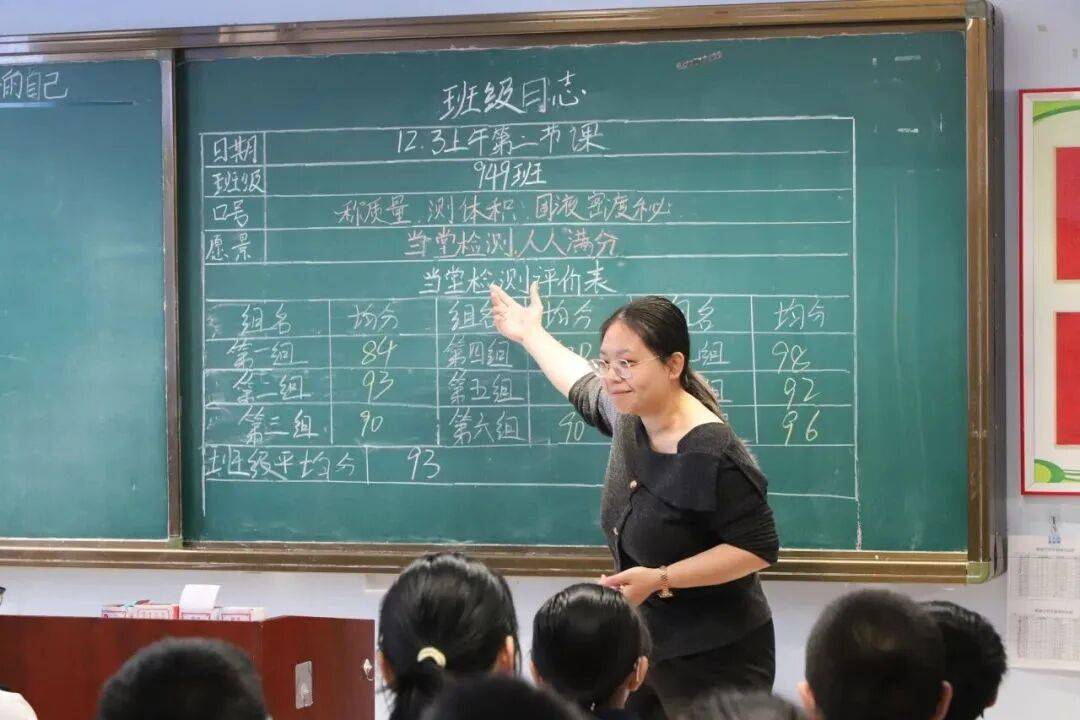 的自己
班级日志
日期 12.3上午第二节课
班级 949班
口号 称质量 测体积 固液密度秘
愿景 当堂检测人人满分
当堂检测评价表
组名 均分 组名 均分 组名 均分
第一组 84 第四组 组 98
第二组 93 第五组 92
第三组 90 第六组 90 96
班级平均分 93